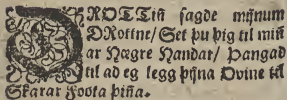 DROTTiñ sagde mijnum
DRottne/ Set þu þig til miñ
ar Hægre Handar/ Þangad
til ad eg legg þijna Ovine til
Skarar Foota þiña.